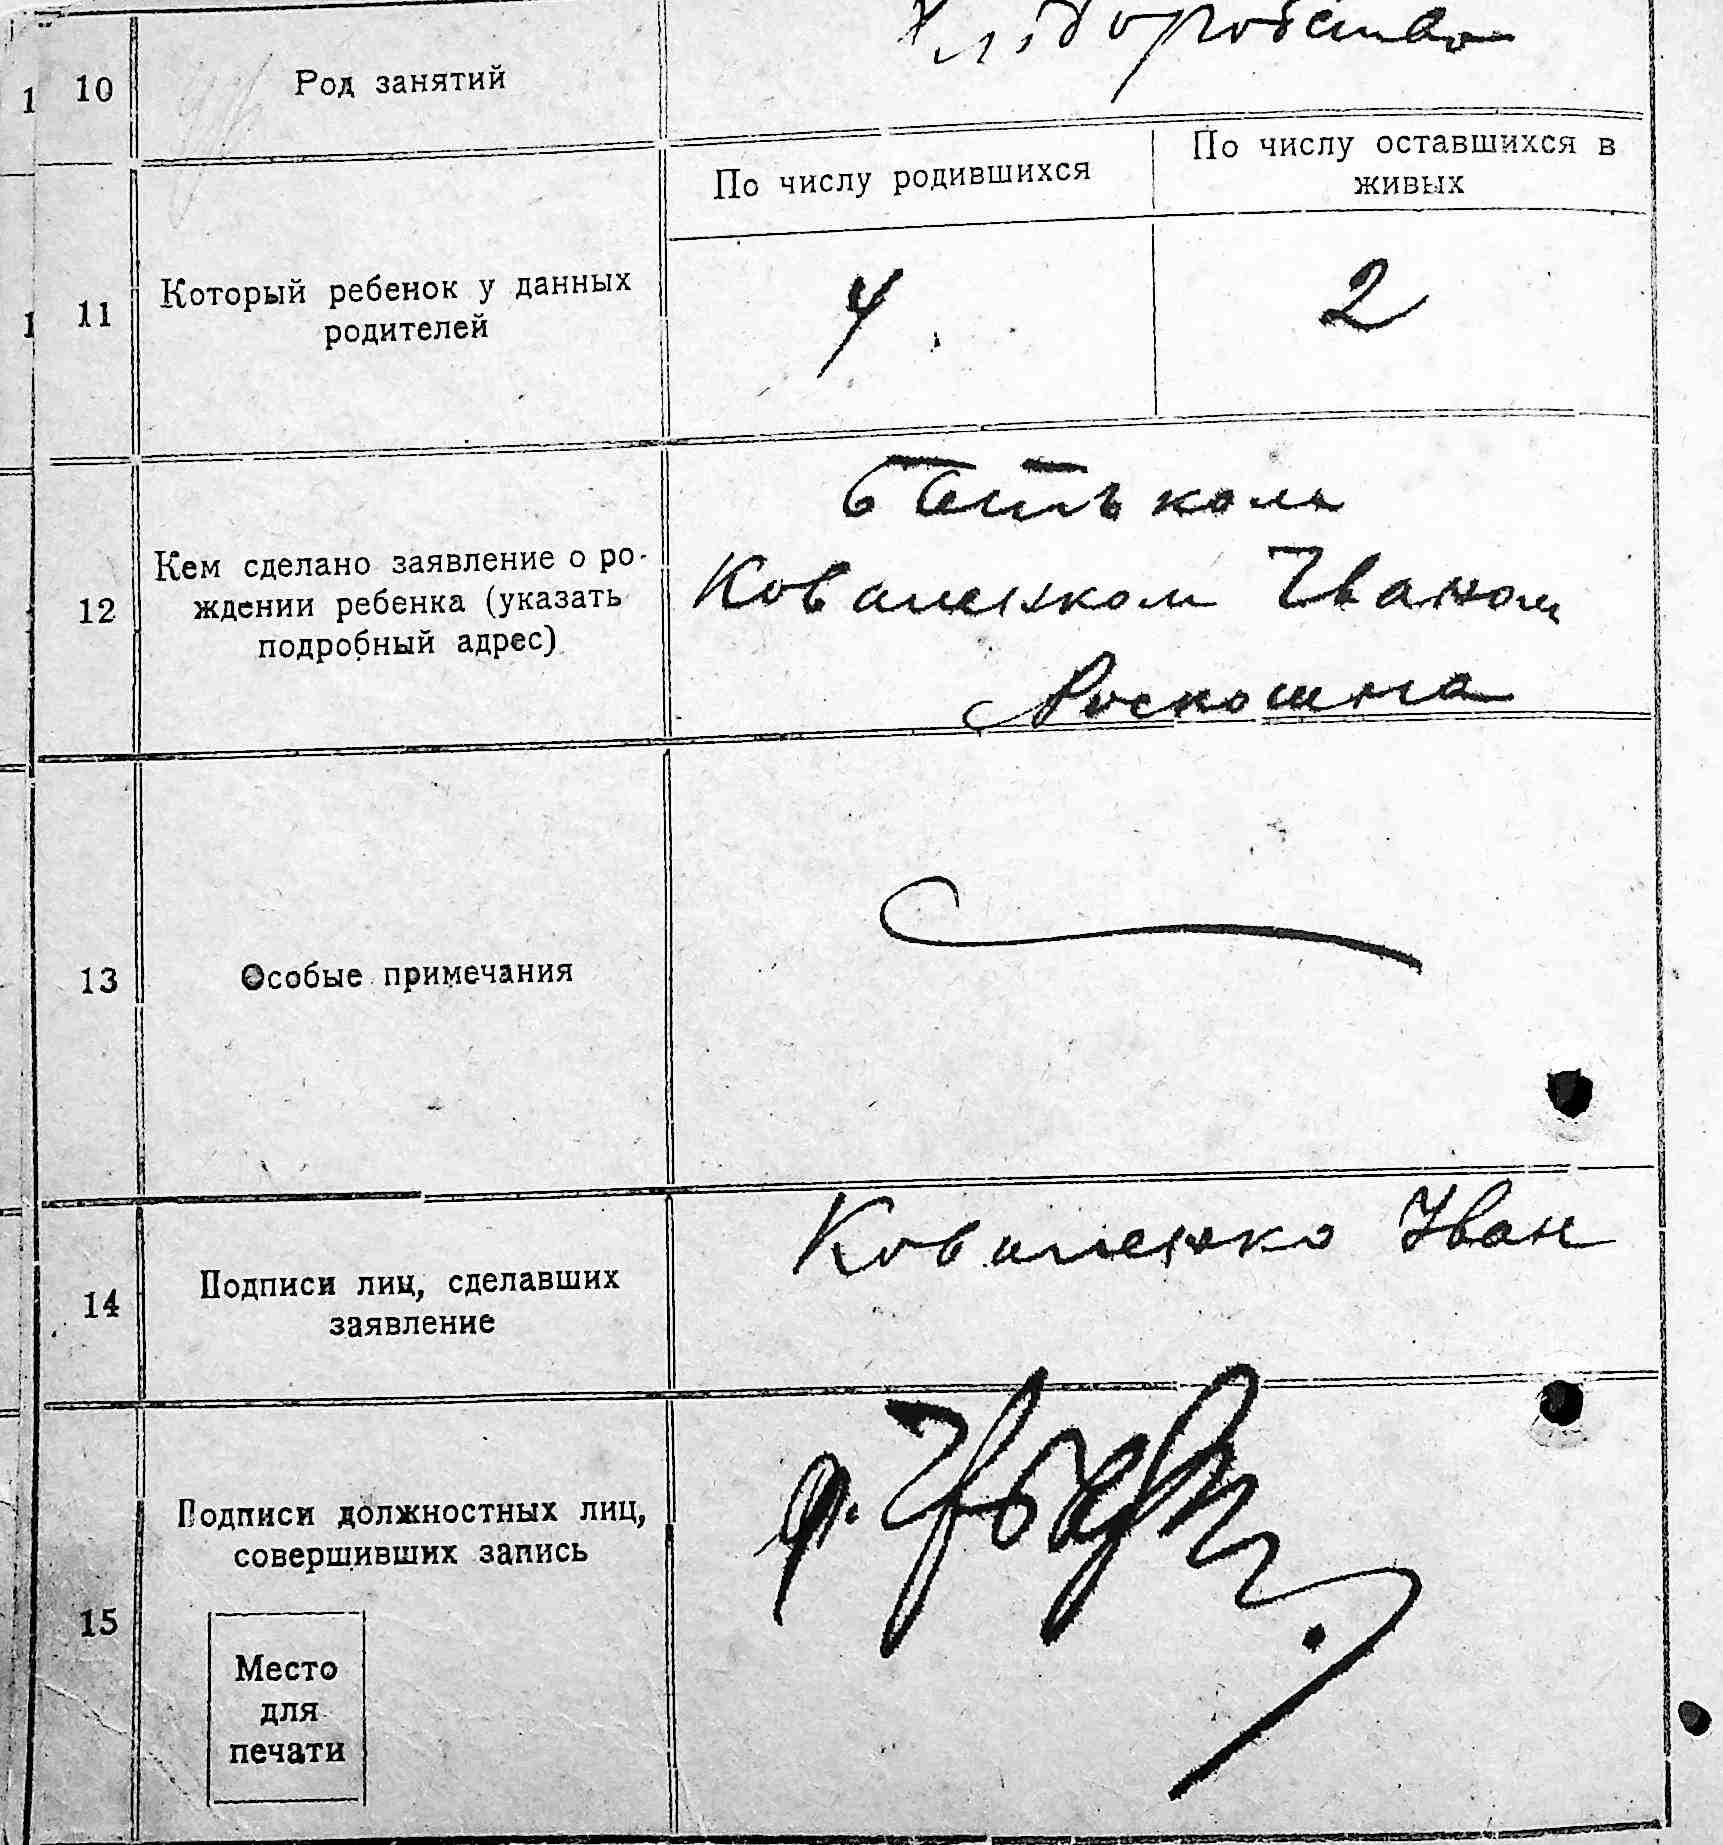 Хліборобство
10 Род занятий
По числу родившихся
По числу оставшихся в живых
11 Который ребенок у данных
родителей
4
2
12 Кем сделано заявление о ро-
ждении ребенка (указать
подробный адрес)
батьком
Коваленком Іваном
Роскошна
13 Особые примечания
14 Подписи лиц, сделавших
заявление
Коваленко Іван
15 Подписи должностных лиц,
совершивших запись
Место
для
печати